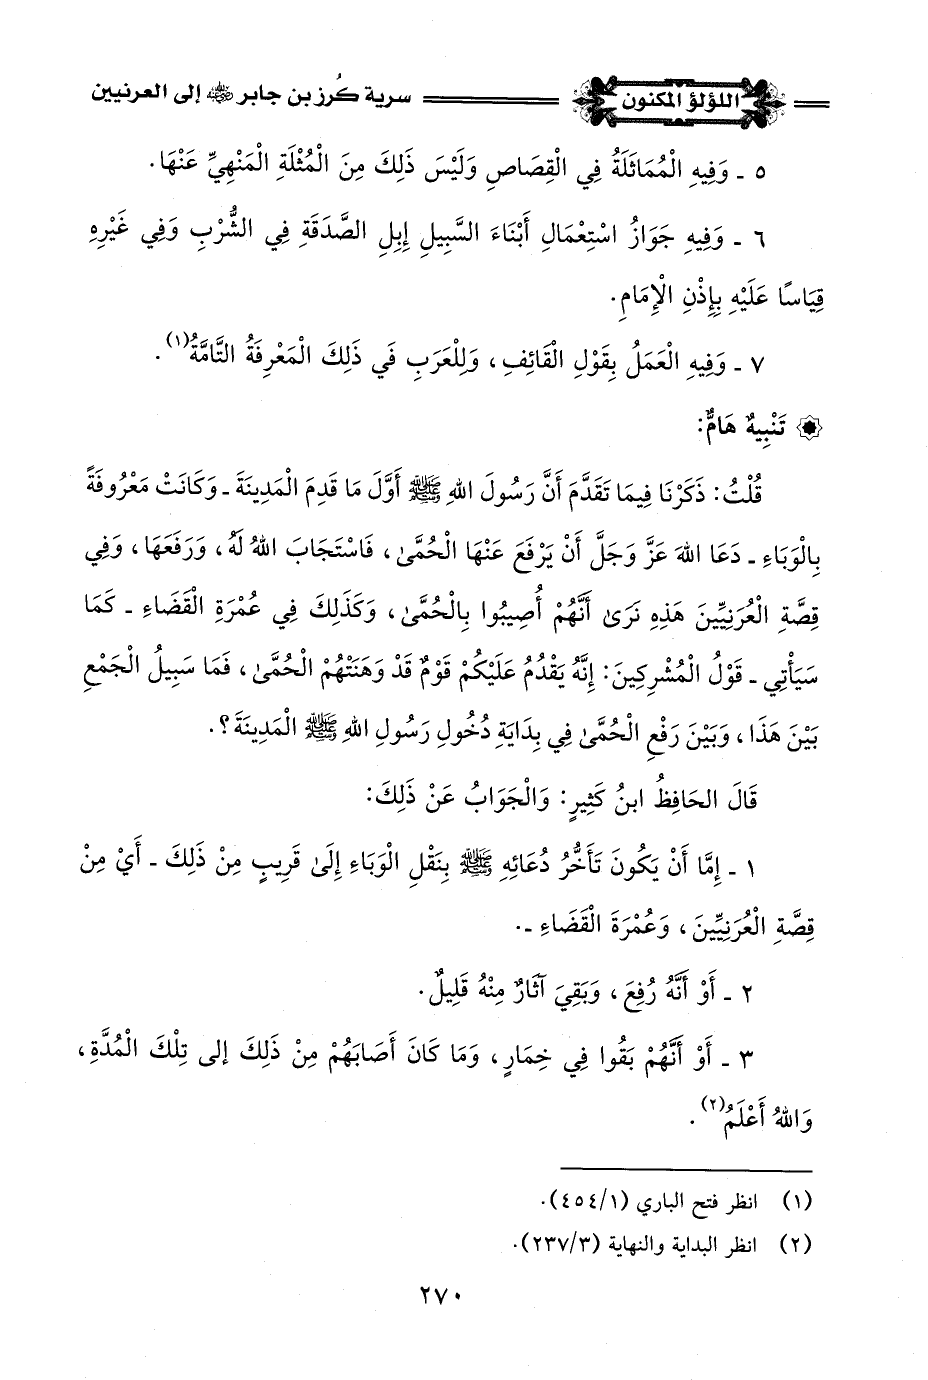 اللؤلؤ المكنون سرية كُرز بن جابر ﷺ إلى العرنيين
٥ ـ وَفِيهِ الْمُمَاثَلَةُ فِي الْقِصَاصِ وَلَيْسَ ذَلِكَ مِنَ الْمُثْلَةِ الْمَنْهِيِّ عَنْهَا.
٦ ـ وَفِيهِ جَوَازُ اسْتِعْمَالِ أَبْنَاءَ السَّبِيلِ إِبِلِ الصَّدَقَةِ فِي الشُّرْبِ وَفِي غَيْرِهِ
قِيَاسًا عَلَيْهِ بِإِذْنِ الْإِمَامِ.
٧ ـ وَفِيهِ الْعَمَلُ بِقَوْلِ الْقَائِفِ، وَلِلْعَرَبِ فَي ذَلِكَ الْمَعْرِفَةُ التَّامَّةُ(١).
تَنْبِيهٌ هَامٌّ:
قُلْتُ: ذَكَرْنَا فِيمَا تَقَدَّمَ أَنَّ رَسُولَ اللهِ ﷺ أَوَّلَ مَا قَدِمَ الْمَدِينَةَ ـ وَكَانَتْ مَعْرُوفَةً
بِالْوَبَاءِ ـ دَعَا اللهَ عَزَّ وَجَلَّ أَنْ يَرْفَعَ عَنْهَا الْحُمَّىٰ، فَاسْتَجَابَ اللهُ لَهُ، وَرَفَعَهَا، وَفِي
قِصَّةِ الْعُرَنِيِّينَ هَذِهِ نَرَىٰ أَنَّهُمْ أُصِيبُوا بِالْحُمَّىٰ، وَكَذَلِكَ فِي عُمْرَةِ الْقَضَاءِ ـ كَمَا
سَيَأْتِي ـ قَوْلُ الْمُشْرِكِينَ: إِنَّهُ يَقْدُمُ عَلَيْكُمْ قَوْمٌ قَدْ وَهَنَتْهُمْ الْحُمَّىٰ، فَمَا سَبِيلُ الْجَمْعِ
بَيْنَ هَذَا، وَبَيْنَ رَفْعِ الْحُمَّىٰ فِي بِدَايَةِ دُخُولِ رَسُولِ اللهِ ﷺ الْمَدِينَةَ؟.
قَالَ الحَافِظُ ابنُ كَثِيرٍ: وَالْجَوَابُ عَنْ ذَلِكَ:
١ ـ إِمَّا أَنْ يَكُونَ تَأَخُّرُ دُعَائِهِ ﷺ بِنَقْلِ الْوَبَاءِ إِلَىٰ قَرِيبٍ مِنْ ذَلِكَ ـ أَيْ مِنْ
قِصَّةِ الْعُرَنِيِّينَ، وَعُمْرَةَ الْقَضَاءِ ـ.
٢ ـ أَوْ أَنَّهُ رُفِعَ، وَبَقِيَ آثَارٌ مِنْهُ قَلِيلٌ.
٣ ـ أَوْ أَنَّهُمْ بَقُوا فِي خِمَارٍ، وَمَا كَانَ أَصَابَهُمْ مِنْ ذَلِكَ إلى تِلْكَ الْمُدَّةِ،
وَاللهُ أَعْلَمُ(٢).
(١) انظر فتح الباري (٤٥٤/١).
(٢) انظر البداية والنهاية (٢٣٧/٣).
٢٧٠